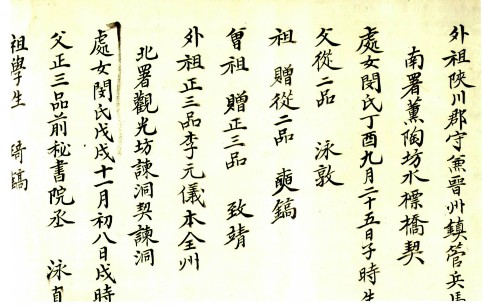 外祖陜川郡守兼晉州鎮管兵馬
南署薰陶坊水標橋契
處女閔氏丁酉九月二十五日子時生
父從二品 泳敦
祖 贈從二品 奭鎬
曾祖 贈正三品 致靖
外祖正三品李元儀本全州
北署觀光坊諫洞契諫洞
處女閔氏戊戌十一月初八日戌時
父正三品前秘書院丞 泳直
祖學生 琦鎬